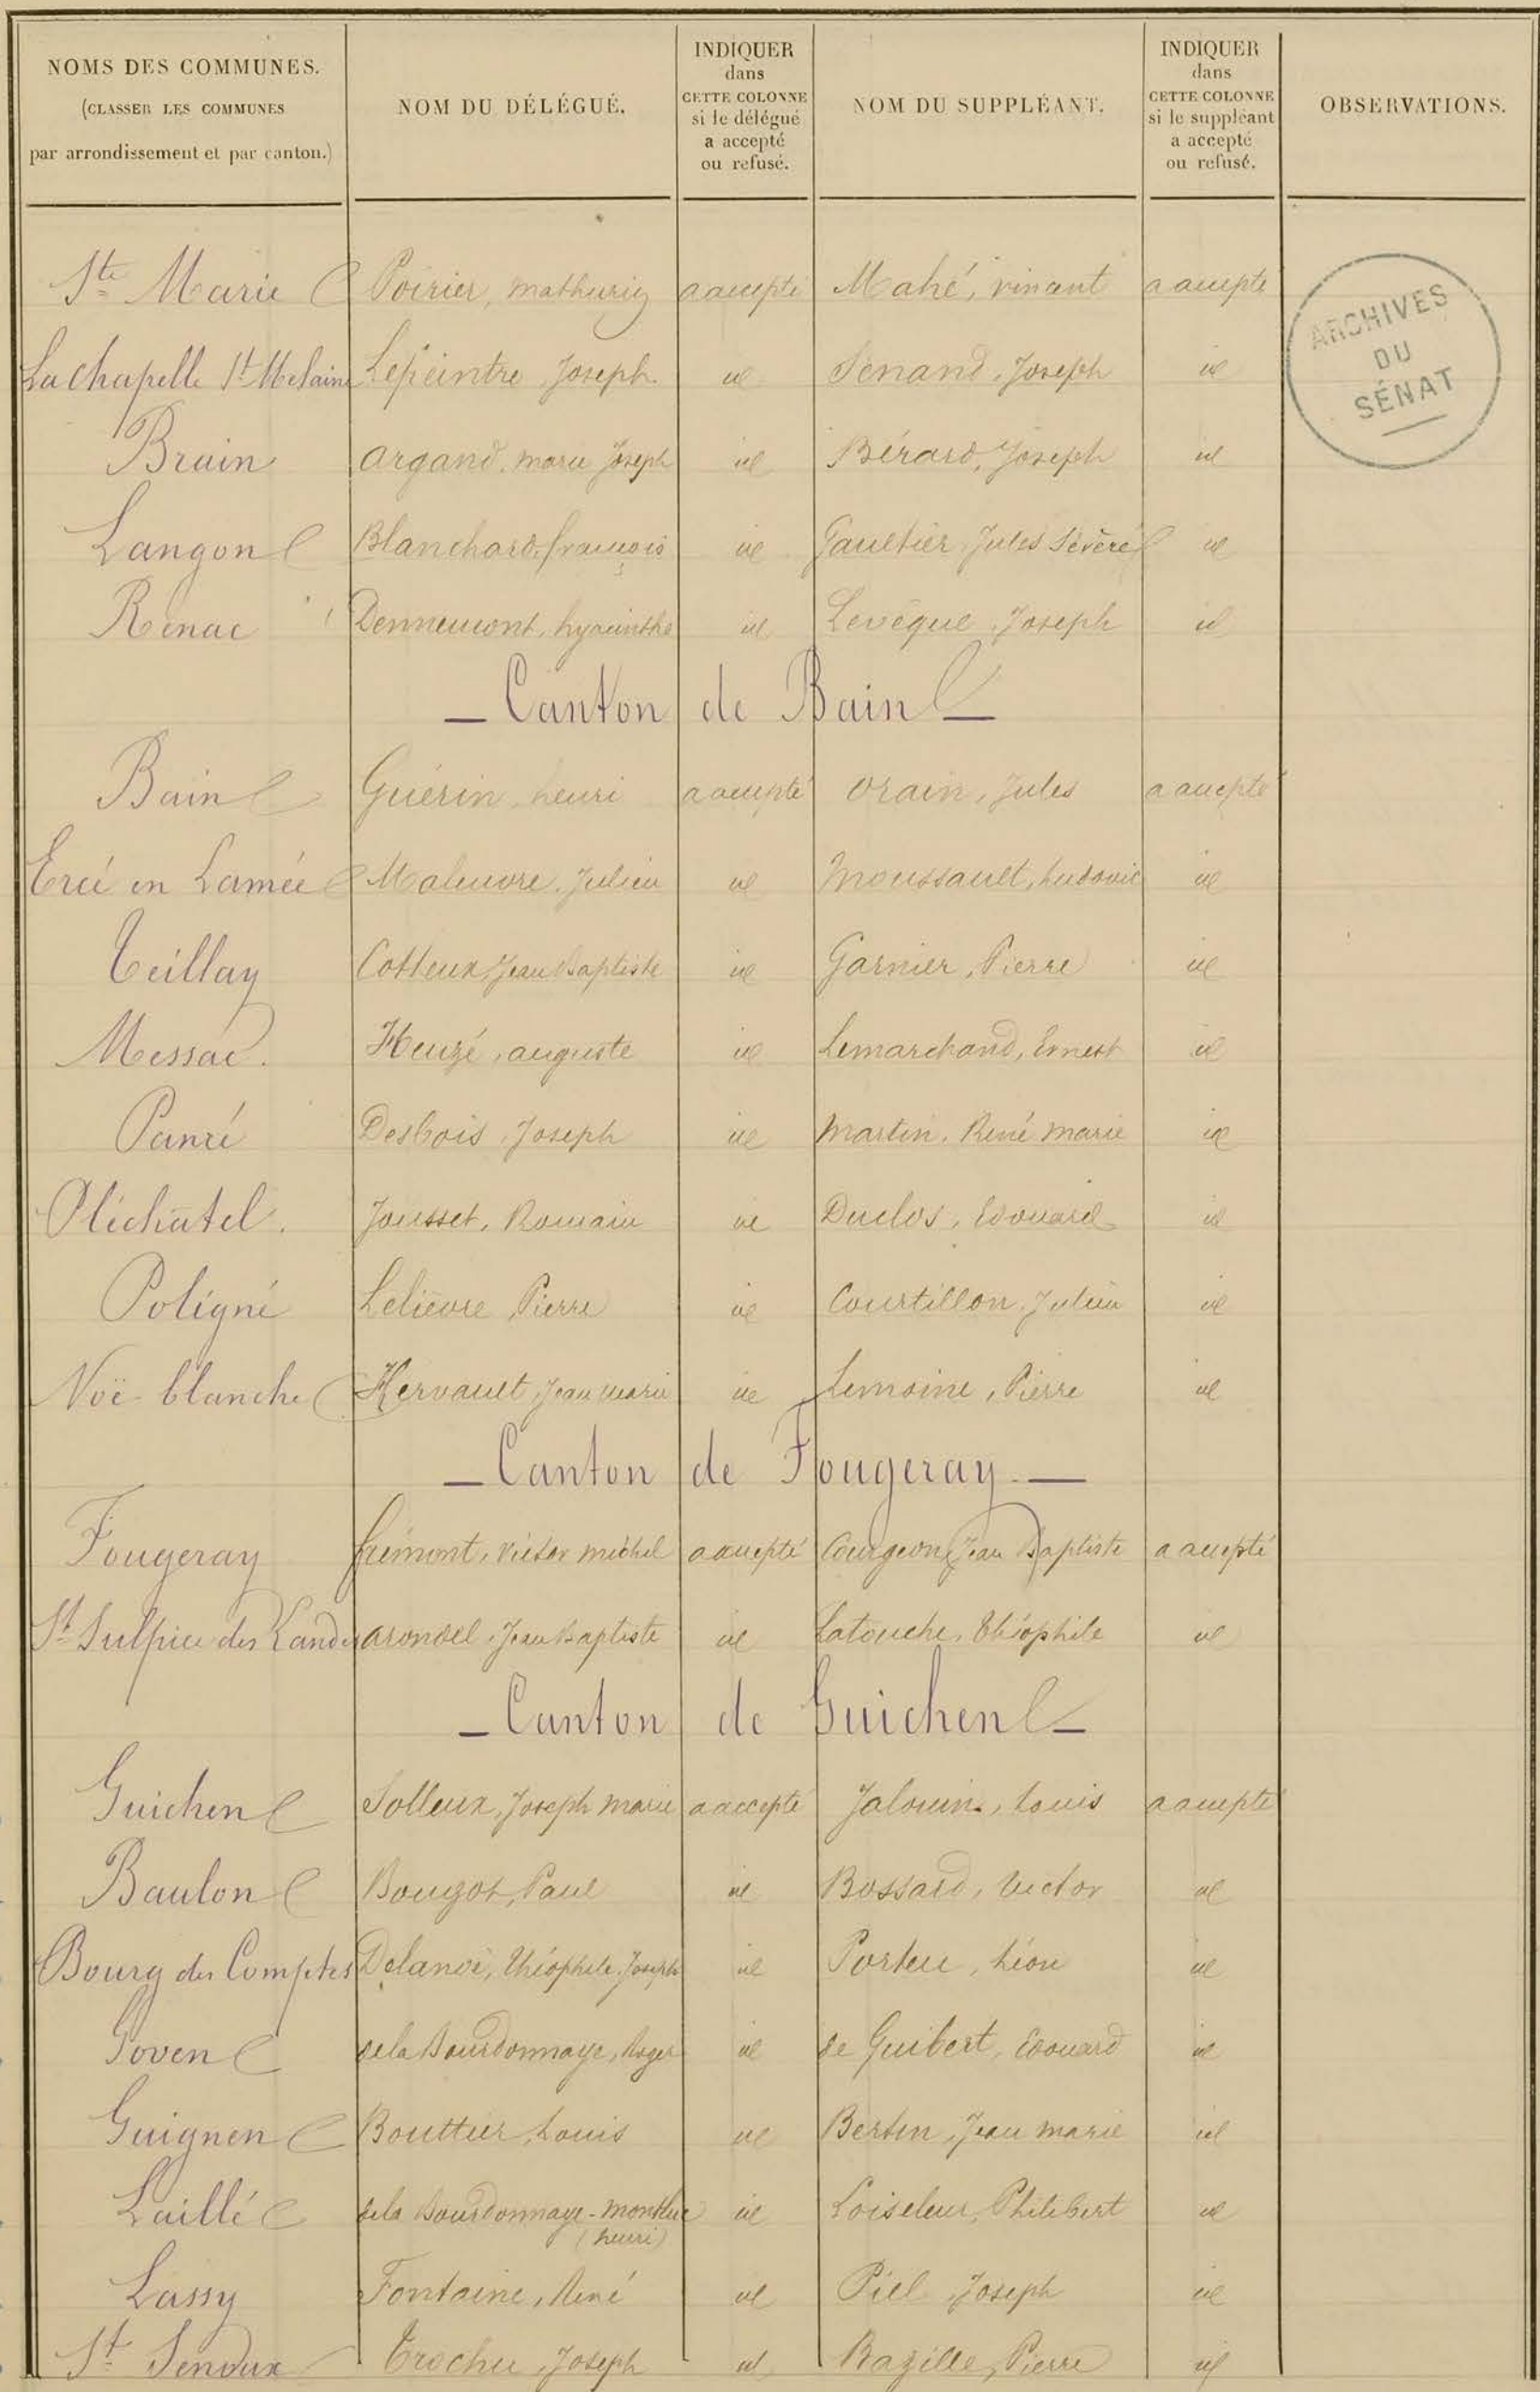 NOMS DES COMMUNES.
(CLASSER LES COMMUNES
par arrondissement et par canton.)
NOM DU DÉLÉGUÉ.
INDIQUER
dans
CETTE COLONNE
si le délégué
a accepté
ou refusé.
NOM DU SUPPLÉANT.
INDIQUER
dans
CETTE COLONNE
si le suppléant
a accepté
ou refusé.
OBSERVATIONS.
ARCHIVES
DU
SÉNAT
Ste Marie Poirier, mathurin a accepté Mahé, vincent a accepté
La Chapelle St Melaine Lepeintre Joseph id Senand, Joseph id
Brain Argand, marie Joseph id Bérard, Joseph id
Langon Blanchard, françois id Gaultier Jules Sévère id
Renac Dennemont, hyacinthe id Levêque Joseph id
— Canton de Bain —
Bain Guérin henri a accepté Orain, Jules a accepté
Ercé en Lamée Maleuvre, Julien id Moussault, Ludovic id
Teillay Cotteux, Jean Baptiste id Garnier, Pierre id
Messac. Heuzé, auguste id Lemarchand, Ernest id
Pancé Desbois, Joseph id Martin, René Marie id
Pléchâtel. Jousset, Romain id Duclos, Edouard id
Poligné Lelièvre Pierre id Courtillon, Julien id
Noë blanche Hervault, Jean marie id Lemoine, Pierre id
— Canton de Fougeray —
Fougeray frémont, victor michel a accepté Courgeon, Jean Baptiste a accepté
St Sulpice des Landes arondel, Jean Baptiste id Latouche, Théophile id
— Canton de Guichen —
Guichen Solleux, Joseph marie a accepté Jalouin, Louis a accepté
Baulon Bougot, Paul id Bossard, Victor id
Bourg des Comptes Delanoë, Théophile Joseph id Porteu, Léon id
Goven de la Bourdonnaye, Roger id de Guibert, Edouard id
Guignen Bouttier, Louis id Bertin, Jean marie id
Laillé de la Bourdonnaye-Montluc id Loiseleur, Philibert id
(henri)
Lassy Fontaine, René id Piel Joseph id
St Senoux Trochu, Joseph id Bazille, Pierre id